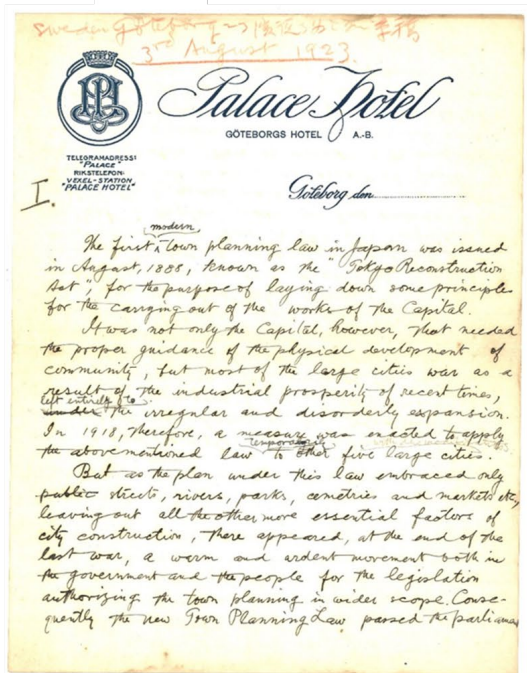 Sweden
3rd August 1923.
Palace Hotel
GÖTEBORGS HOTEL A.-B.
TELEGRAMADRESS:
"PALACE"
RIKSTELEFON:
VEXEL-STATION
"PALACE HOTEL"
Göteborg den
I.
modern
The first town planning law in Japan was issued
in August, 1888, known as the "Tokyo Reconstruction
Act", for the purpose of laying down some principles
for the carrying out of the works of the Capital.
It was not only the Capital, however, that needed
the proper guidance of the physical development of
community, but most of the large cities war as a
result of the industrial prosperity of recent times,
left entirely to
under the irregular and disorderly expansion.
In 1918, therefore, a measure was enacted to apply
temporarily
the abovementioned law to other five large cities.
But as the plan under this law embraced only
public streets, rivers, parks, cemetries and markets etc,
leaving out all the other more essential factors of
city construction, there appeared, at the end of the
last war, a warm and ardent movement both in
the government and the people for the legislation
authorizing the town planning in wider scope. Conse-
quently the new Town Planning Law passed the parliament